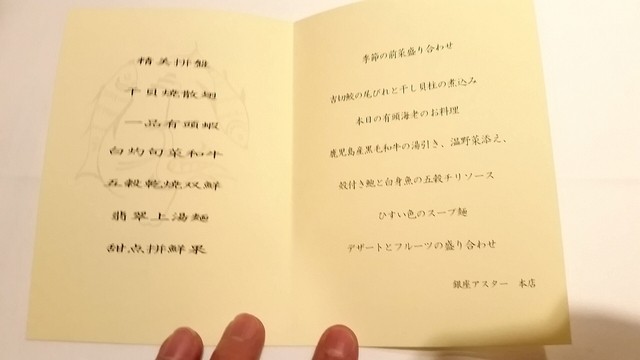 精美拼盤
干貝燒散翅
一品有頭蝦
白灼旬菜和牛
五穀乾燒双鮮
翡翠上湯麵
甜点拼鮮果
季節の前菜盛り合わせ
吉切鮫の尾びれと干し貝柱の煮込み
本日の有頭海老のお料理
鹿児島産黒毛和牛の湯引き、温野菜添え、
殻付き鮑と白身魚の五穀チリソース
ひすい色のスープ麺
デザートとフルーツの盛り合わせ
銀座アスター 本店